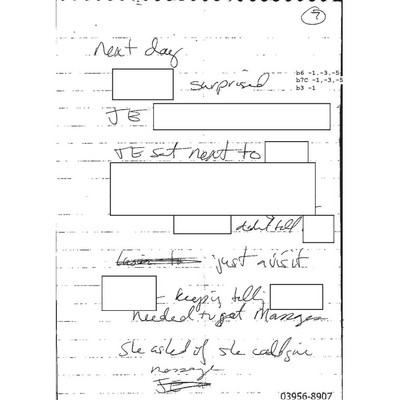 9
next day
surprised
b6 -1,-3,-5
b7C -1,-3,-5
b3 -1
JE
JE sat next to
didn't tell
just a visit
- keeping telling
needed to get Massage
She asked if she could give
massage
JE
03956-8907